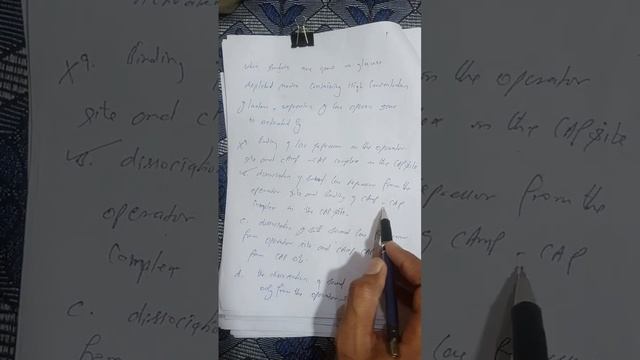 when bacteria are grown in glucose
depleted media containing High Concentration
of lactose, expression of lac operon gene
is activated by
xa. Binding of lac repressor in the operator
site and cAmp-CAP complex in the CAP site
dissociation of bound lac repressor from the
operator site and binding of cAmp - CAP
Complex in the CAP site.
c. dissociation of bound lac
from operator site and cAmp CAP
from CAP site
d. the dissociation of bound
only from the operator